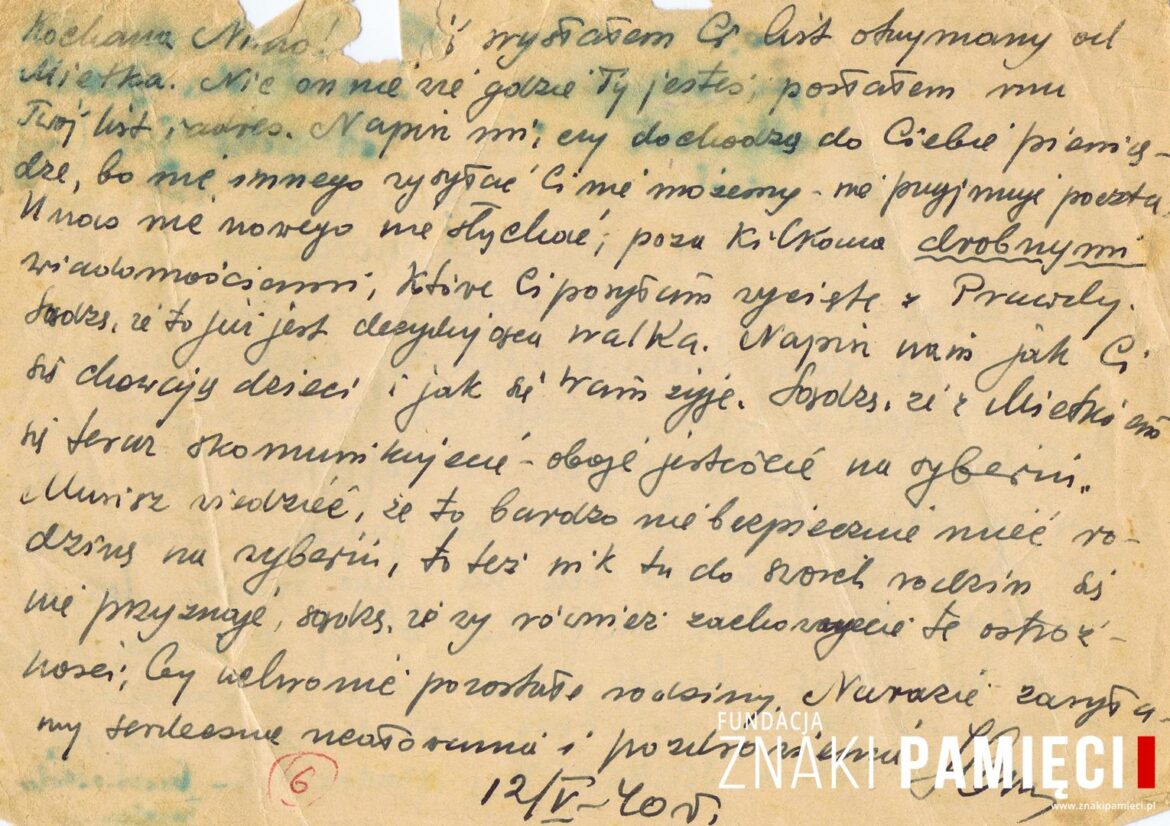 Kochana Nino! ś wysłałem Ci list otrzymany od
Mietka. Nic on nie wie gdzie Ty jesteś, posłałem mu
Twój list i adres. Napisz mi, czy dochodzą do Ciebie pienią-
dze, bo nic innego wysyłać Ci nie możemy - nie przyjmuje poczta
U nas nic nowego nie słychać, poza kilkoma drobnymi
wiadomościami, które Ci posyłam wycięte z Prawdy.
Sądzę, że to już jest decydująca walka. Napisz nam jak Ci
się chowają dzieci i jak się Wam żyje. Sądzę, że z
się teraz skomunikujecie - oboje jesteście na syberii.
Musisz wiedzieć, że to bardzo niebezpiecznie mieć ro-
dzinę na syberii, to też nik tu do swoich rodzin się
nie przyznaje, sądzę, że wy również zachowujecie te ostroż-
ności, by uchronić pozostałe rodziny. Narazie zasyła-
my serdeczne ucałowania i pozdrowienia
12/V-40 r.
6
FUNDACJA
ZNAKI PAMIĘCI
www.znakipamieci.pl